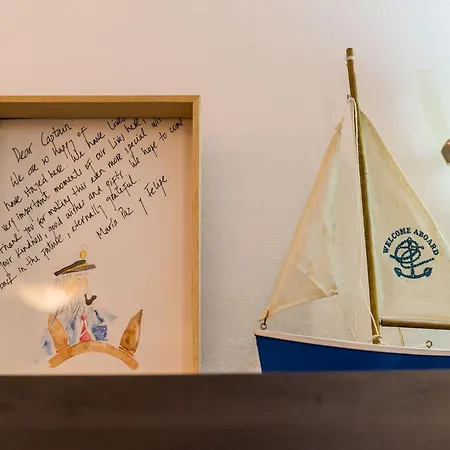 Dear Captain:
We are so happy of
have stayed here. We have lived
very important moments of our lives here,
thank you for making this even more special with
your kindness, good wishes and gifts. We hope to come
back in the future, eternally grateful
Maria Paz y Felipe.
WELCOME ABOARD